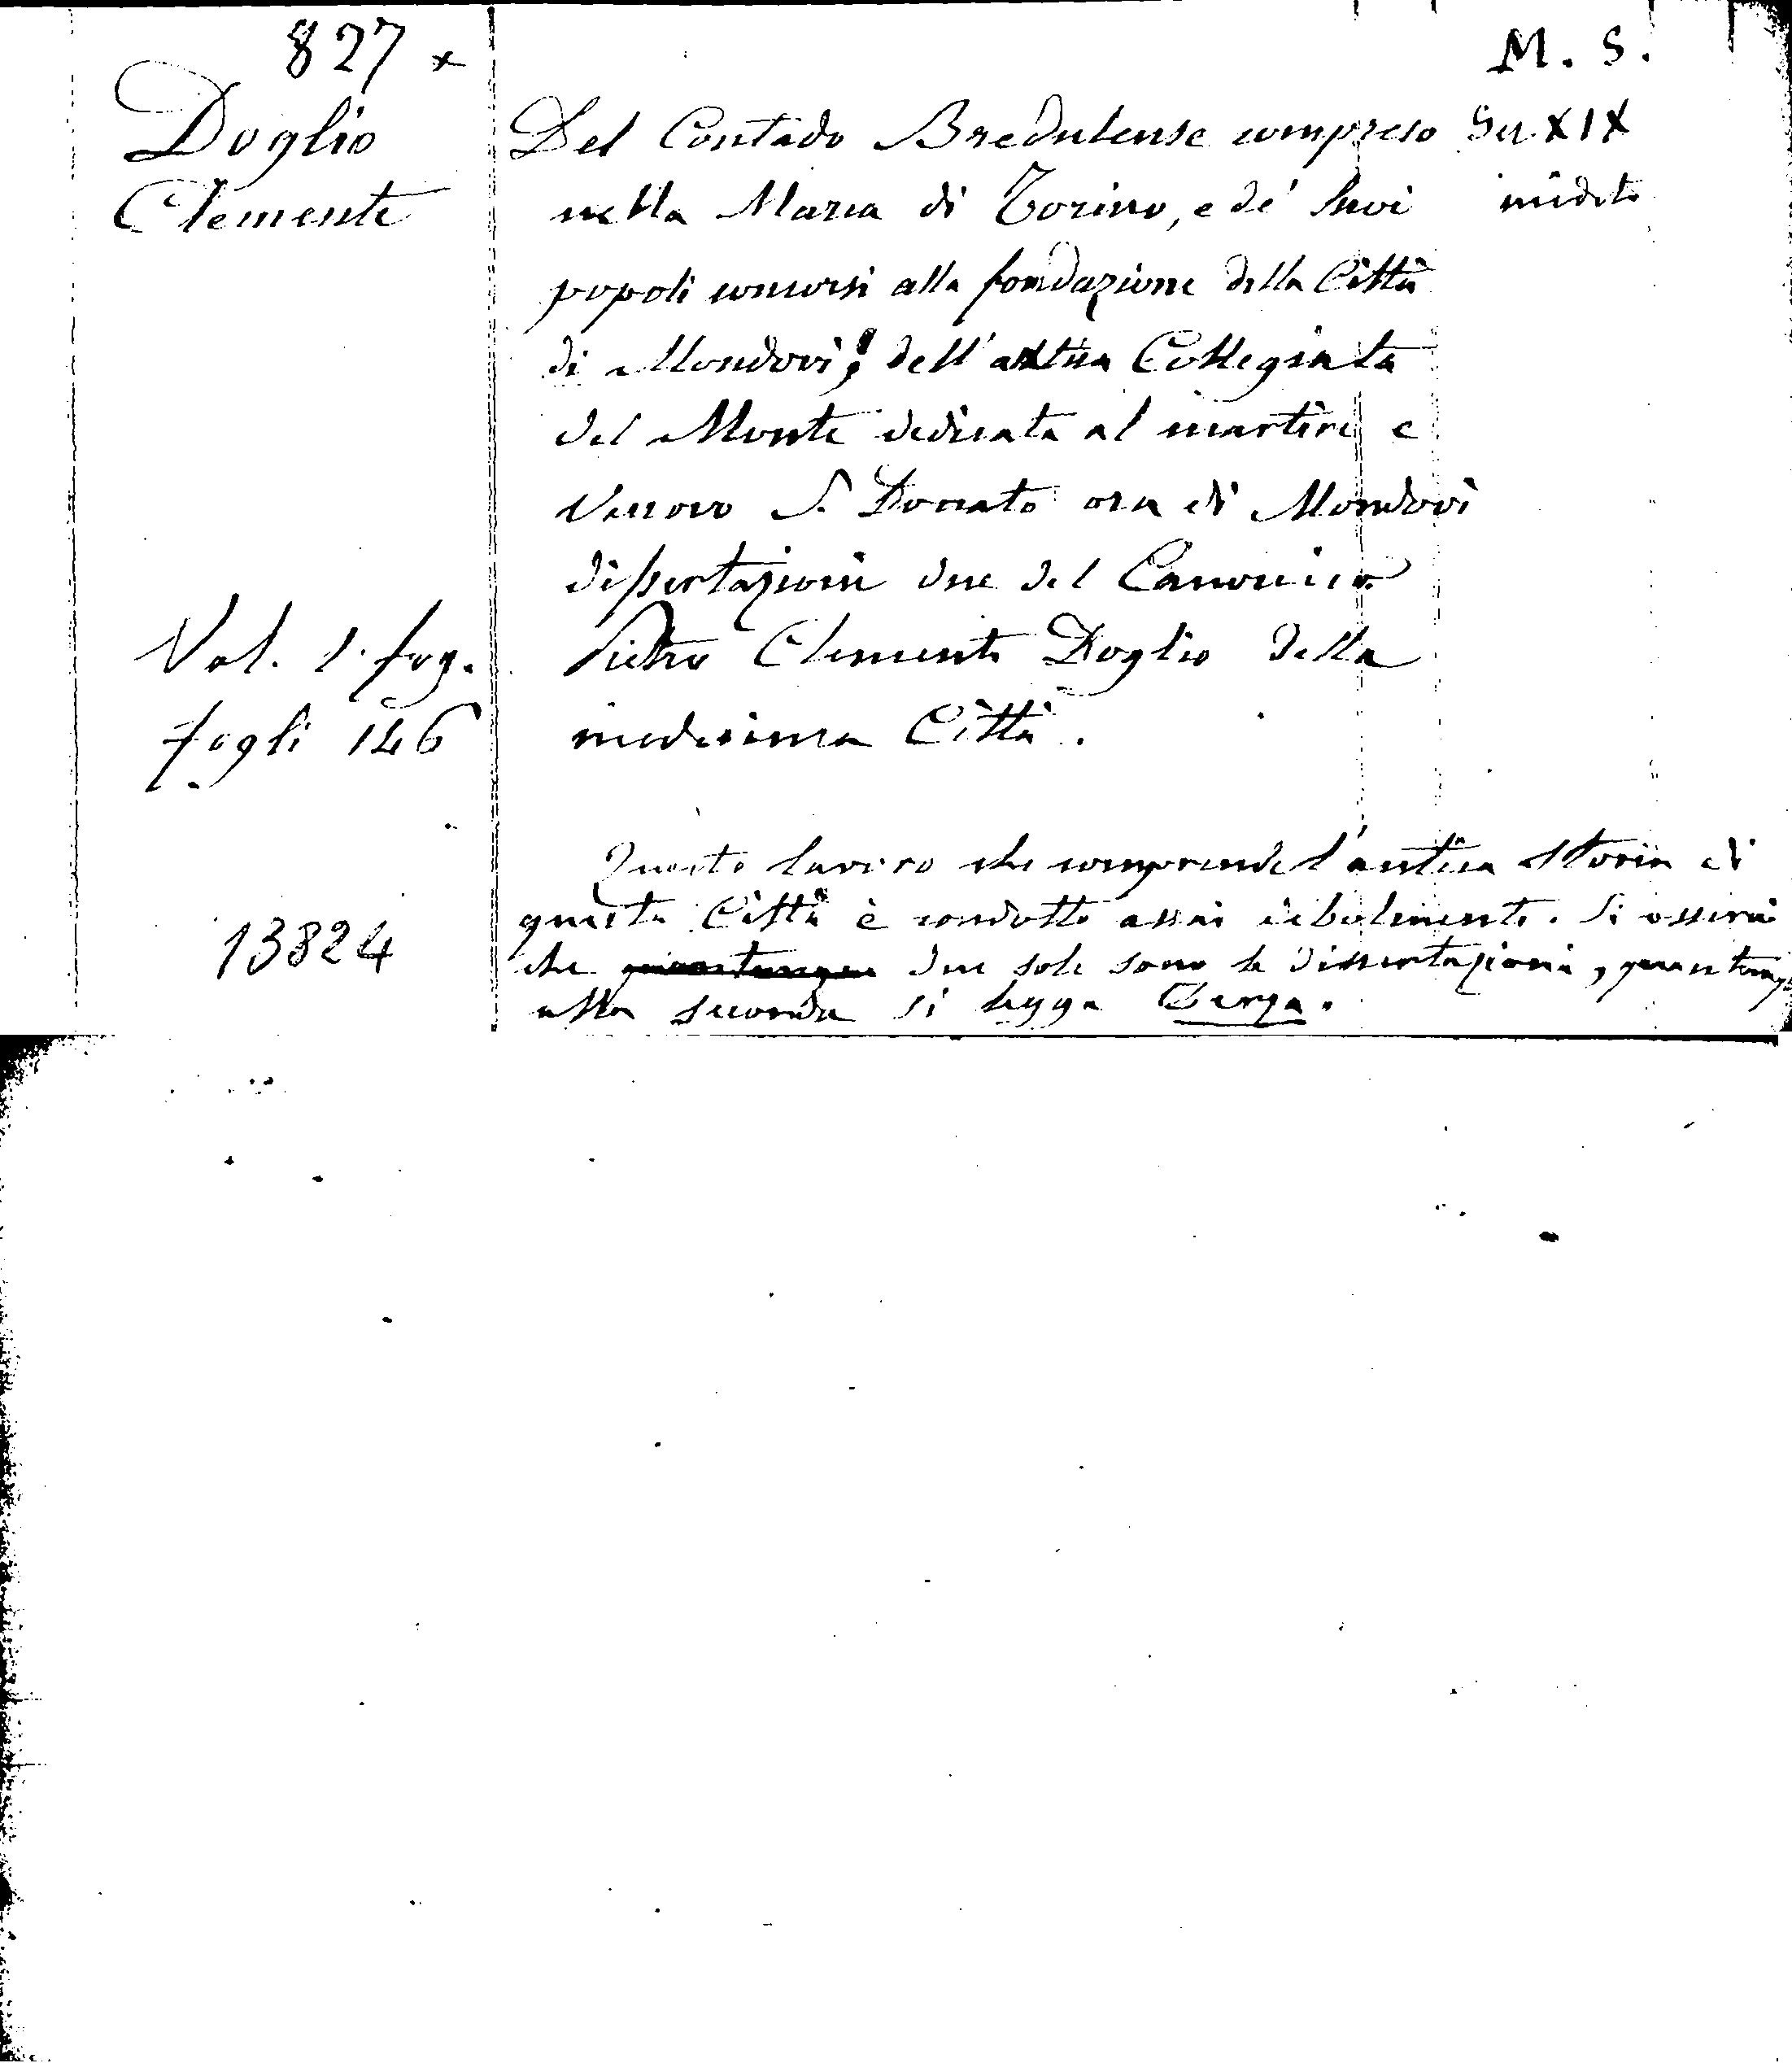 827 x
M. S.
Doglio
Clemente
Del Contado Bredulense compreso
nella Marca di Torino, e de' suoi
popoli concorsi alla fondazione della Città
di Mondovì; dell'antica Collegiata
del Monte dedicata al martire e
Vescovo S. Donato ora di Mondovì
dissertazioni due del Canonico
Pietro Clemente Doglio della
medesima Città.
Sec XIX
inedito
Vol. 1. fog.
fogli 146
13824
Questo lavoro che comprende l'antica storia di
questa Città è condotto assai debolmente. Si osservi
che quantunque due sole sono le dissertazioni, quantunq
alla seconda si legga Terza.